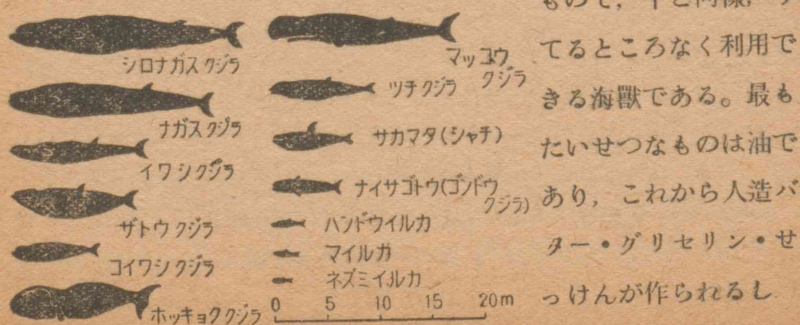 シロナガスクジラ
ナガスクジラ
イワシクジラ
ザトウクジラ
コイワシクジラ
ホッキョククジラ
マッコウ
クジラ
ツチクジラ
サカマタ(シャチ)
ナイサゴトウ(ゴンドウ
クジラ)
ハンドウイルカ
マイルカ
ネズミイルカ
0 5 10 15 20m
てるところなく利用で
きる海獸である。最も
たいせつなものは油で
あり，これから人造バ
ター・グリセリン・せ
っけんが作られるし